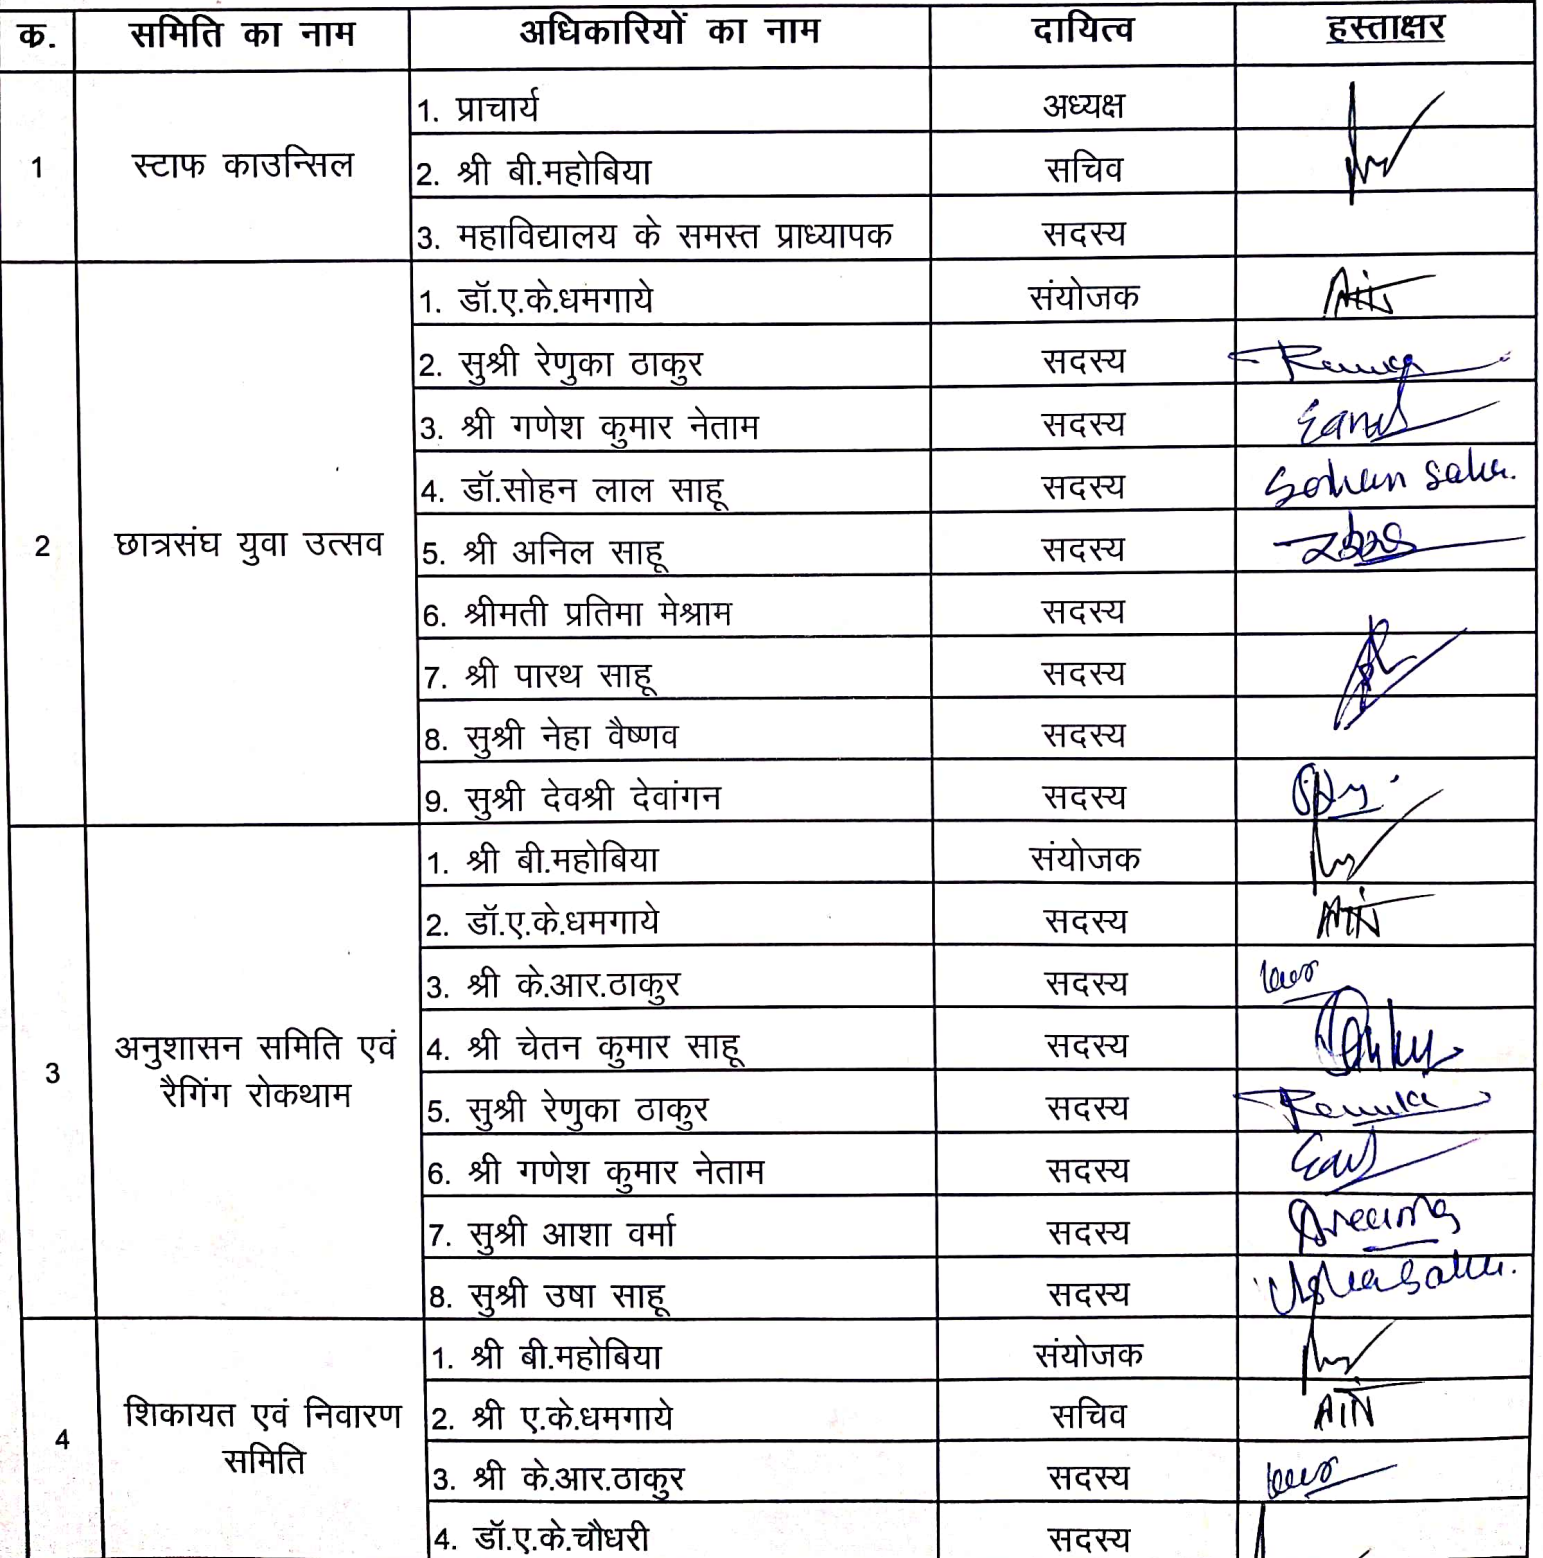 क. समिति का नाम अधिकारियों का नाम दायित्व हस्ताक्षर
1 स्टाफ काउन्सिल
1. प्राचार्य अध्यक्ष
2. श्री बी.महोबिया सचिव
3. महाविद्यालय के समस्त प्राध्यापक सदस्य
2 छात्रसंघ युवा उत्सव
1. डॉ.ए.के.धमगाये संयोजक
2. सुश्री रेणुका ठाकुर सदस्य
3. श्री गणेश कुमार नेताम सदस्य
4. डॉ.सोहन लाल साहू सदस्य Sohan Sahu.
5. श्री अनिल साहू सदस्य
6. श्रीमती प्रतिमा मेश्राम सदस्य
7. श्री पारथ साहू सदस्य
8. सुश्री नेहा वैष्णव सदस्य
9. सुश्री देवश्री देवांगन सदस्य
3 अनुशासन समिति एवं
रैगिंग रोकथाम
1. श्री बी.महोबिया संयोजक
2. डॉ.ए.के.धमगाये सदस्य
3. श्री के.आर.ठाकुर सदस्य
4. श्री चेतन कुमार साहू सदस्य
5. सुश्री रेणुका ठाकुर सदस्य
6. श्री गणेश कुमार नेताम सदस्य
7. सुश्री आशा वर्मा सदस्य
8. सुश्री उषा साहू सदस्य Usha Sahu.
4 शिकायत एवं निवारण
समिति
1. श्री बी.महोबिया संयोजक
2. श्री ए.के.धमगाये सचिव
3. श्री के.आर.ठाकुर सदस्य
4. डॉ.ए.के.चौधरी सदस्य